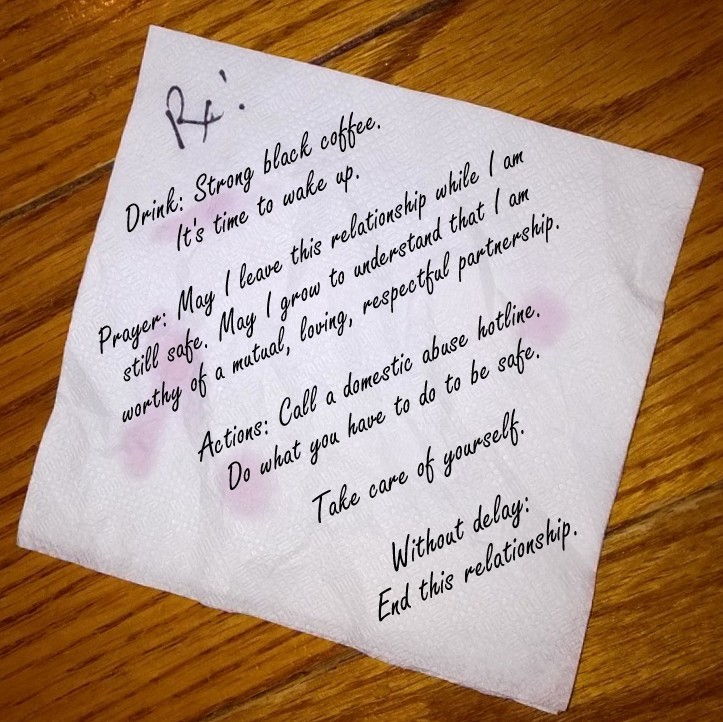 Rx!
Drink: Strong black coffee.
It's time to wake up.
Prayer: May I leave this relationship while I am
still safe. May I grow to understand that I am
worthy of a mutual, loving, respectful partnership.
Actions: Call a domestic abuse hotline.
Do what you have to do to be safe.
Take care of yourself.
Without delay:
End this relationship.